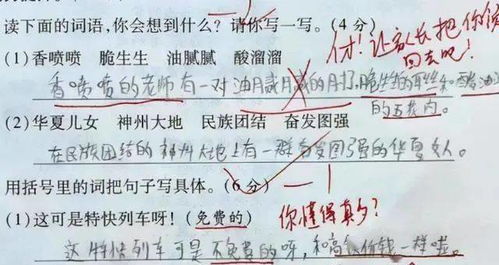 读下面的词语,你会想到什么? 请你写一写。(4分)
(1)香喷喷 脆生生 油腻腻 酸溜溜
人才!让家长把你领回去吧!
香喷喷的老师有一对油腻腻的肘子,脆生生的耳丝和酸溜
的五花肉。
(2)华夏儿女 神州大地 民族团结 奋发图强
在民族团结的神州大地上有一群奋发图强的华夏女人。
用括号里的词把句子写具体。(6分)
(1)这可是特快列车呀! (免费的)
你懂得真多?
这特快列车可是不免费的呀,和高铁价钱一样啦。